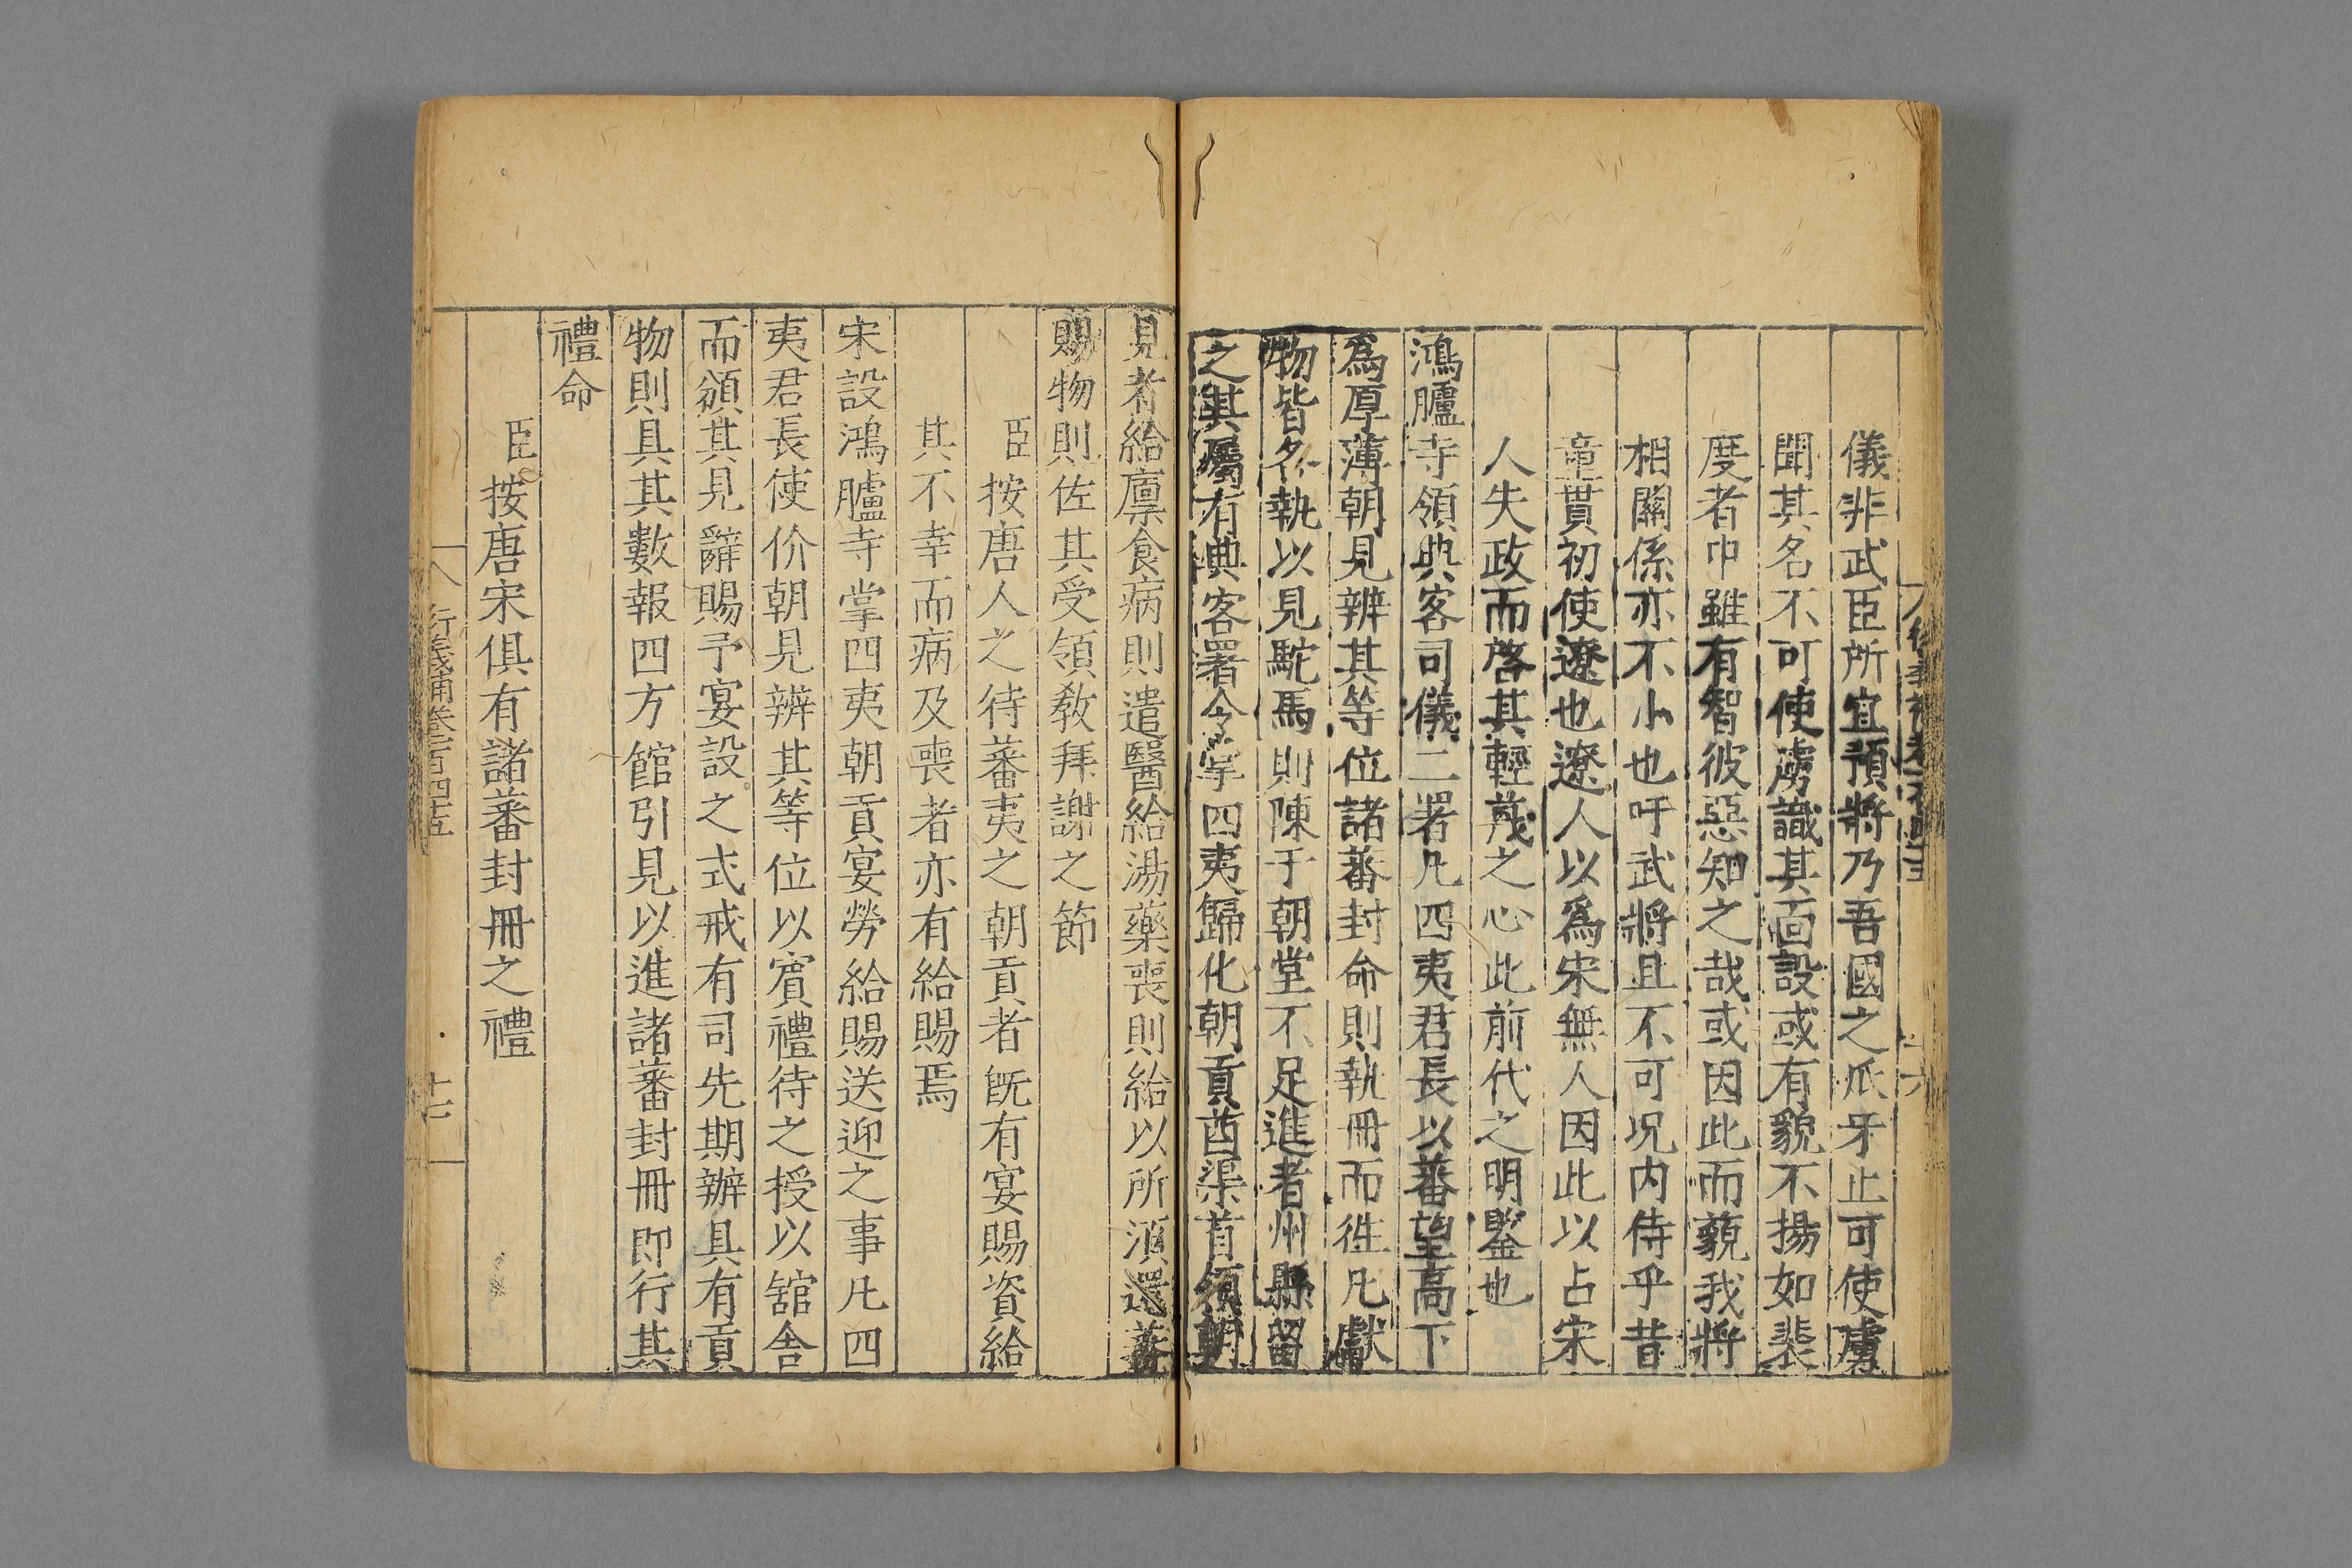 儀非武臣所宜預將乃吾國之爪牙止可使虜
聞其名不可使虜識其面設或有貌不揚如裴
度者中雖有智彼惡知之哉或因此而藐我將
相關係亦不小也吁武將且不可况内侍乎昔
童貫初使遼也遼人以爲宋無人因此以占宋
人失政而啓其輕蔑之心此前代之明鑒也
鴻臚寺領典客司儀二署凡四夷君長以蕃望高下
爲厚薄朝見辨其等位諸蕃封命則執冊而徃凡獻
物皆名執以見駝馬則陳于朝堂不足進者州縣留
之其屬有典客署令掌四夷歸化朝貢酋渠首領朝
見者給廩食病則遣醫給湯藥喪則給以所湏還蕃
賜物則佐其受領敎拜謝之節
臣按唐人之待蕃夷之朝貢者旣有宴賜資給
其不幸而病及喪者亦有給賜焉
宋設鴻臚寺掌四夷朝貢宴勞給賜送迎之事凡四
夷君長使价朝見辨其等位以賓禮待之授以舘舎
而頒其見辭賜予宴設之式戒有司先期辦具有貢
物則具其數報四方館引見以進諸蕃封冊即行其
禮命
臣按唐宋俱有諸蕃封冊之禮
衍義補卷一百四十五
十七